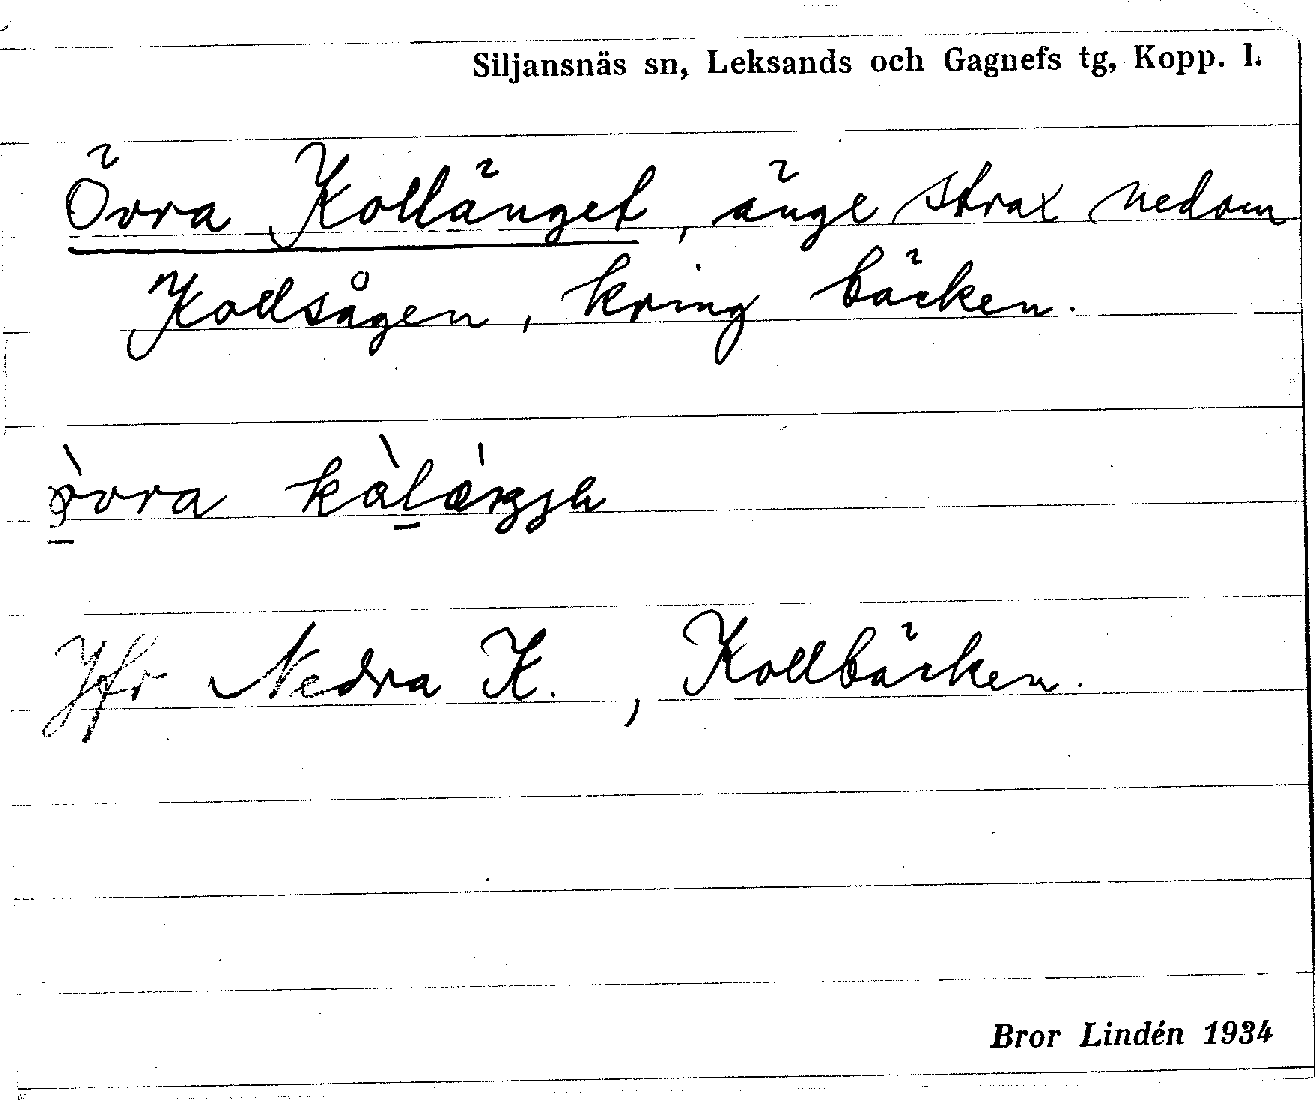 Siljansnäs sn, Leksands och Gagnefs tg, Kopp. l.
Övra Kollänget, änge strax nedom
Kollsågen, kring bäcken.
Jfr Nedra K., Kollbäcken.
Bror Lindén 1934